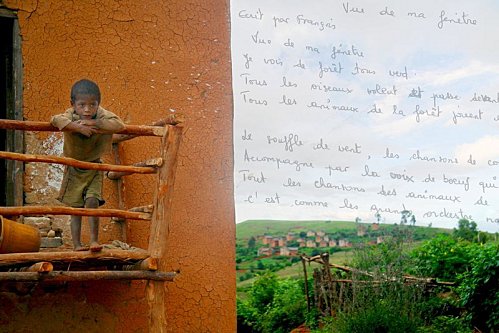 Vue de ma fenêtre
Écrit par François
Vue de ma fenêtre
Je vois de forêt tous vert.
Tous les oiseaux volent et passe devant
Tous les animaux de la forêt jouent
Le souffle de vent, les chansons de
Accompagne par la voix de boeuf
Tout les chansons des animaux de
c'est comme les grant orchestre